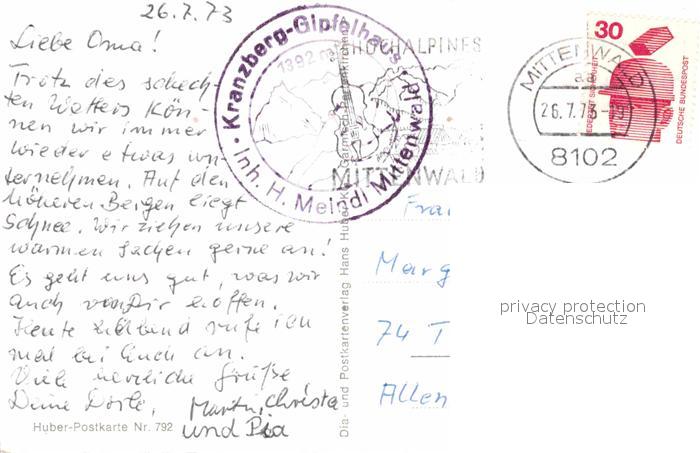 26.7.73
Liebe Oma!
Trotz des schech-
ten Wetters kön-
nen wir immer
wieder etwas un-
ternehmen. Auf den
höheren Bergen liegt
Schnee. Wir ziehen unsere
warmen Sachen gerne an!
Es geht uns gut, was wir
auch von Dir hoffen.
Heute Abend rufe ich
mal bei Euch an.
Viele herzliche Grüße
Deine Dorle, Martin, Christa
und Pia
Huber-Postkarte Nr. 792
Dia- und Postkartenverlag Hans Huber KG Garmisch-Partenkirchen
Kranzberg-Gipfelhaus
1392 m
Inh. H. Meindl Mittenwald
HOCHALPINES
MITTENWALD
MITTENWALD
aa
26.7.73
8102
30
JEDERZEIT SICHERHEIT
DEUTSCHE BUNDESPOST
Frau
Marg
74 T
Allen
privacy protection
Datenschutz